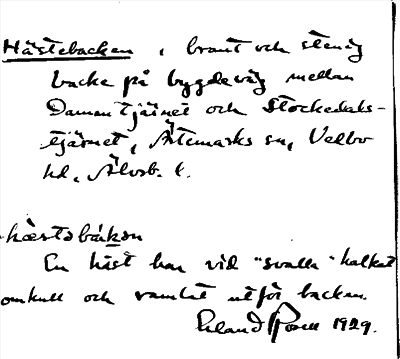 Hästebacken, brant och stenig
backe på bygdeväg mellan
Dammtjärnet och Stockedals-
tjärnet, Ärtemarks sn, Vedbo
hd, Älvsb. l.
hæstəbákən
En häst har vid "svall" halkat
omkull och ramlat utför backen.
Erland Rosell 1929.